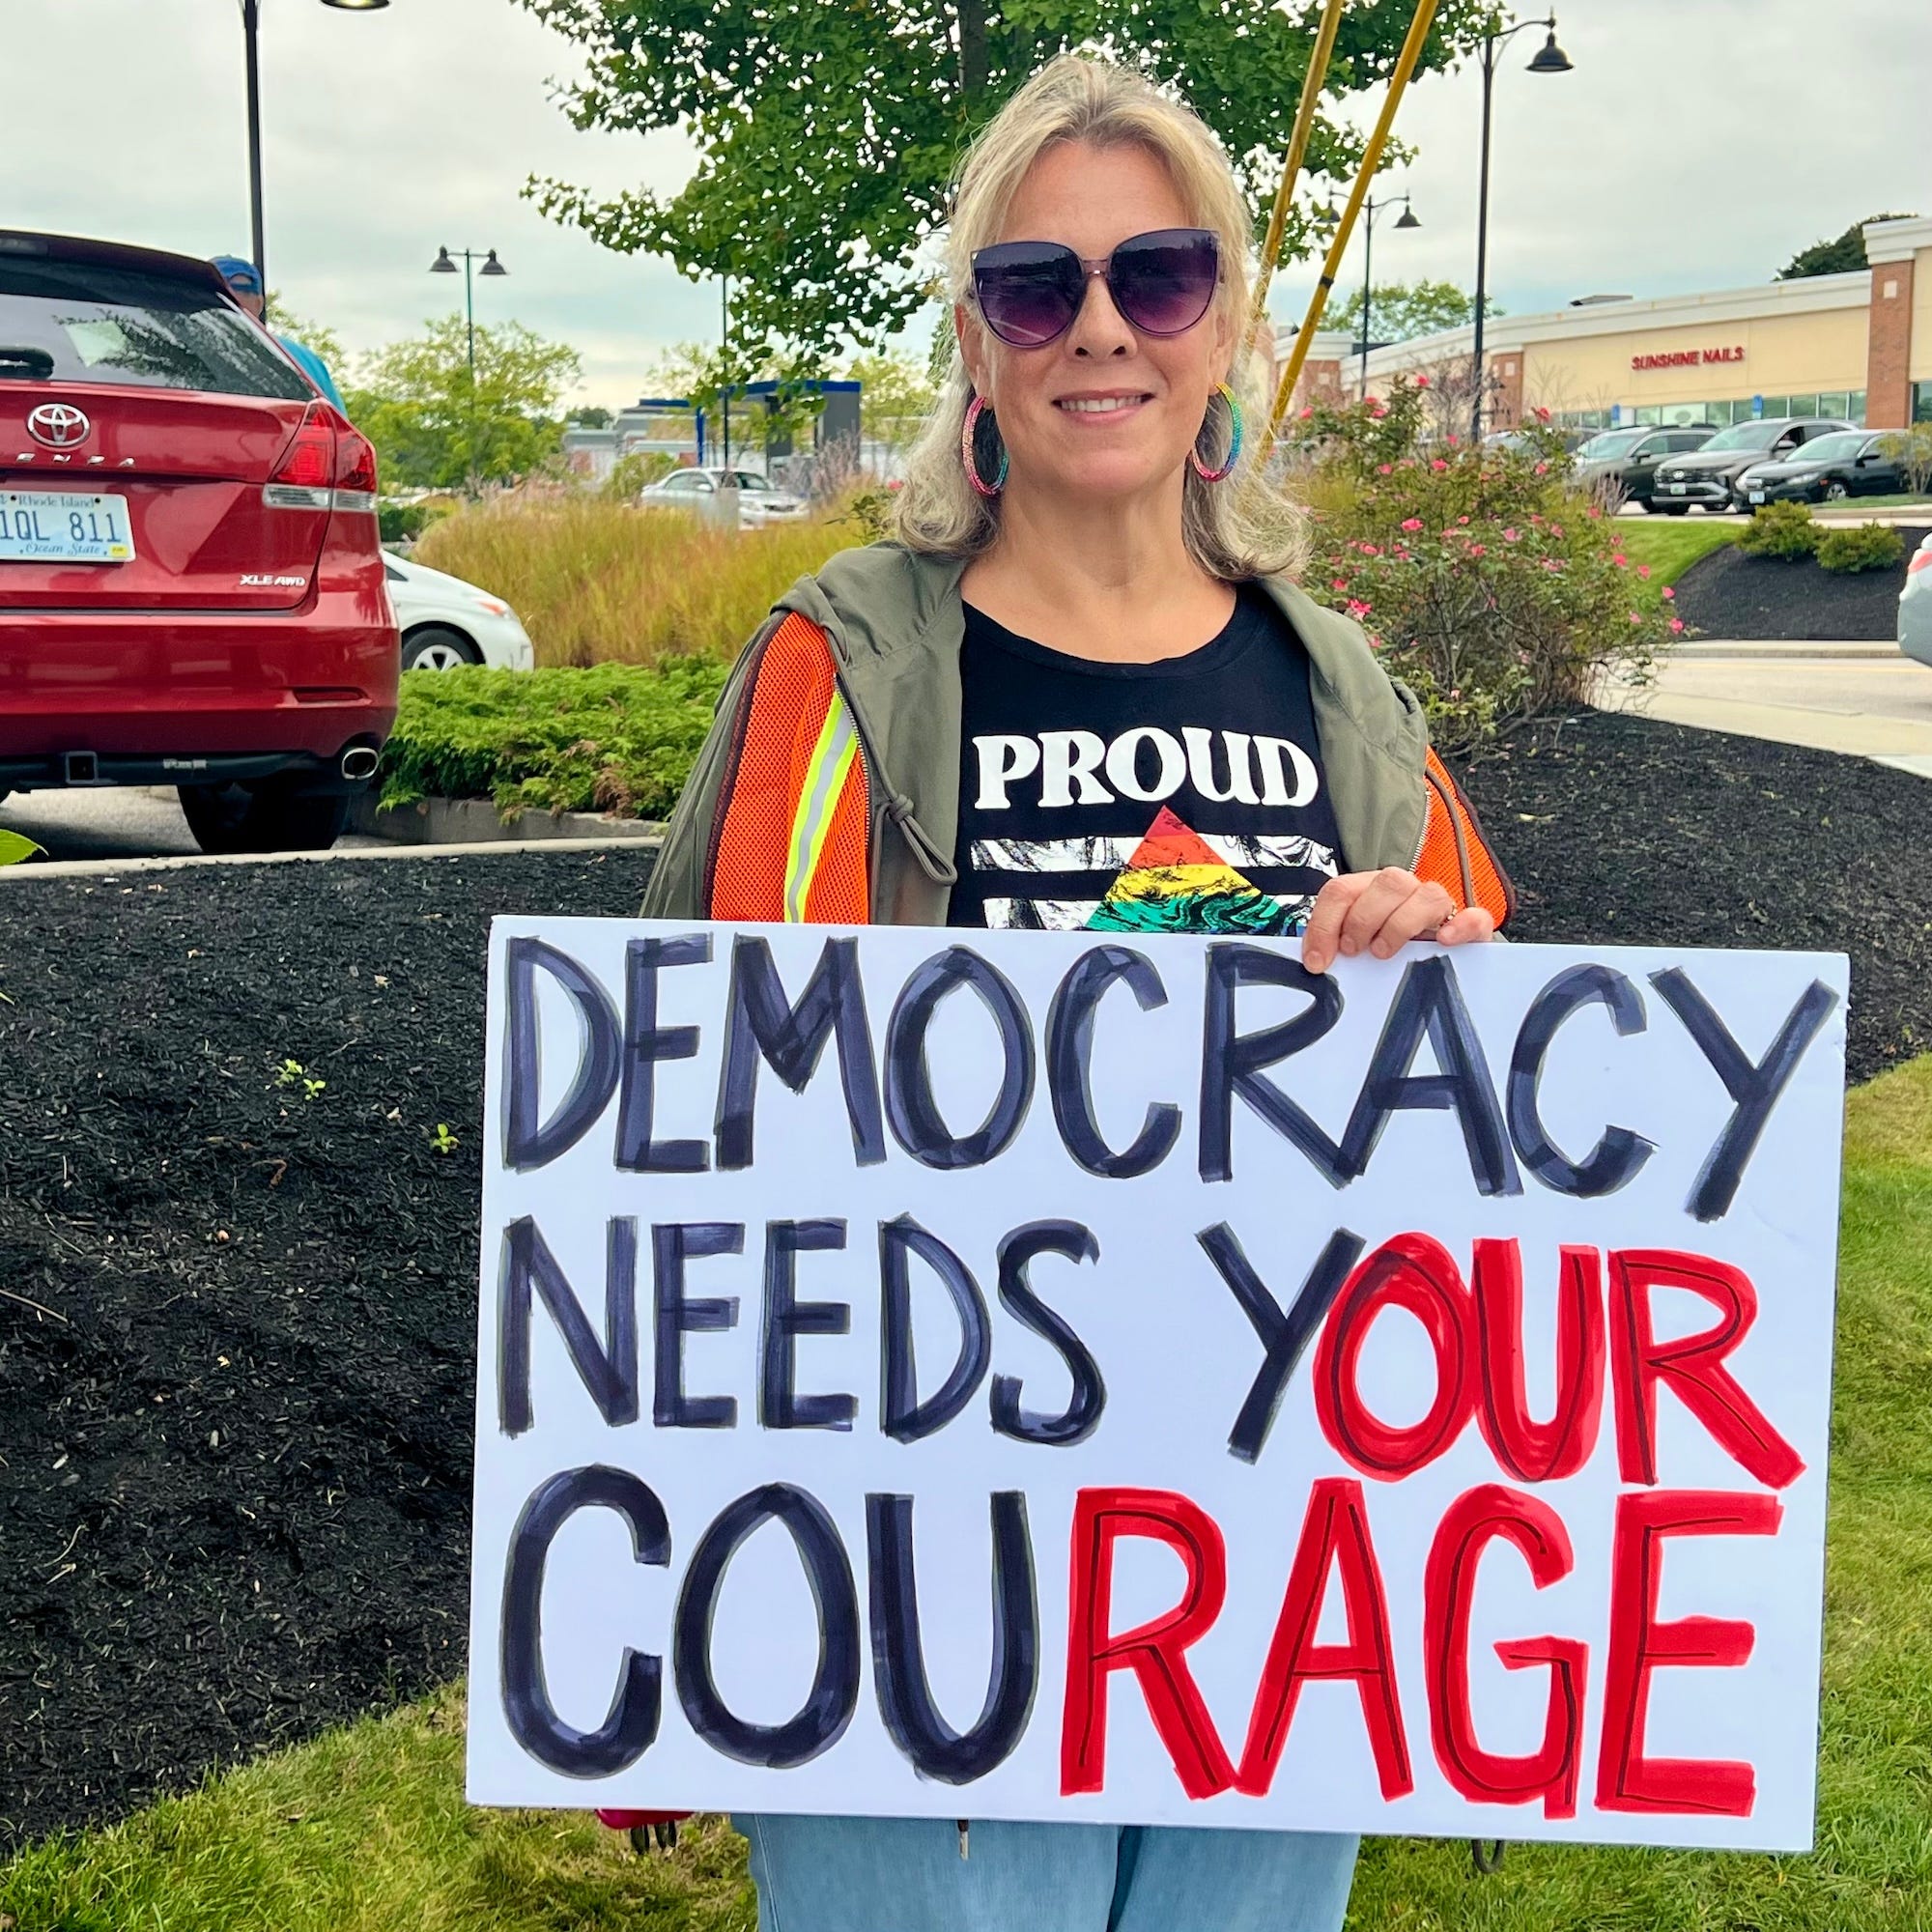 SUNSHINE NAILS
VENZA
Rhode Island
1QL 811
Ocean State
XLE AWD
PROUD
DEMOCRACY
NEEDS YOUR
COURAGE